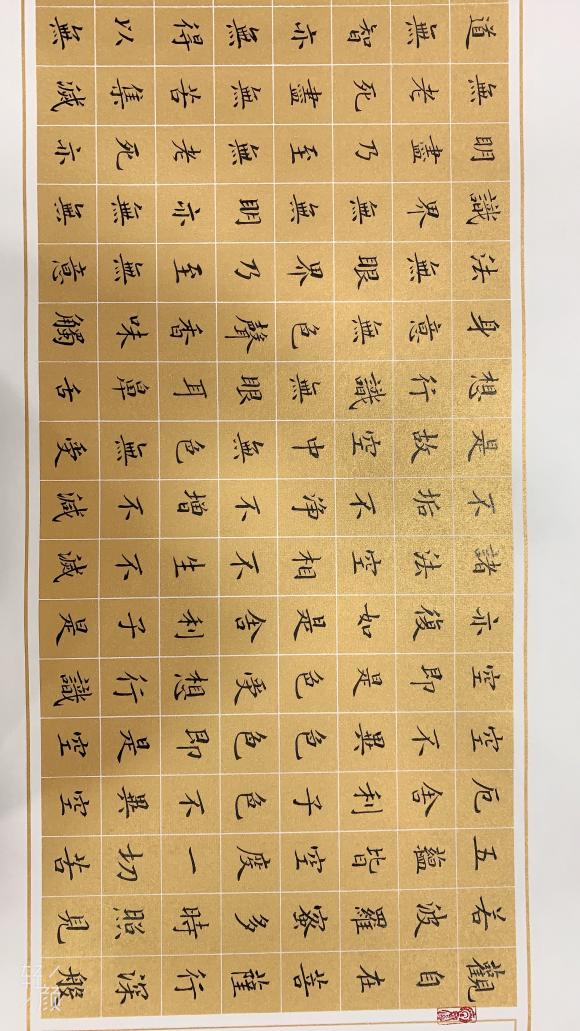 觀自在菩薩行深般
若波羅蜜多時照見
五蘊皆空度一切苦
厄舍利子色不異空
空不異色色即是空
空即是色受想行識
亦復如是舍利子是
諸法空相不生不滅
不垢不淨不增不減
是故空中無色無受
想行識無眼耳鼻舌
身意無色聲香味觸
法無眼界乃至無意
識界無無明亦無無
明盡乃至無老死亦
無老死盡無苦集滅
道無智亦無得以無